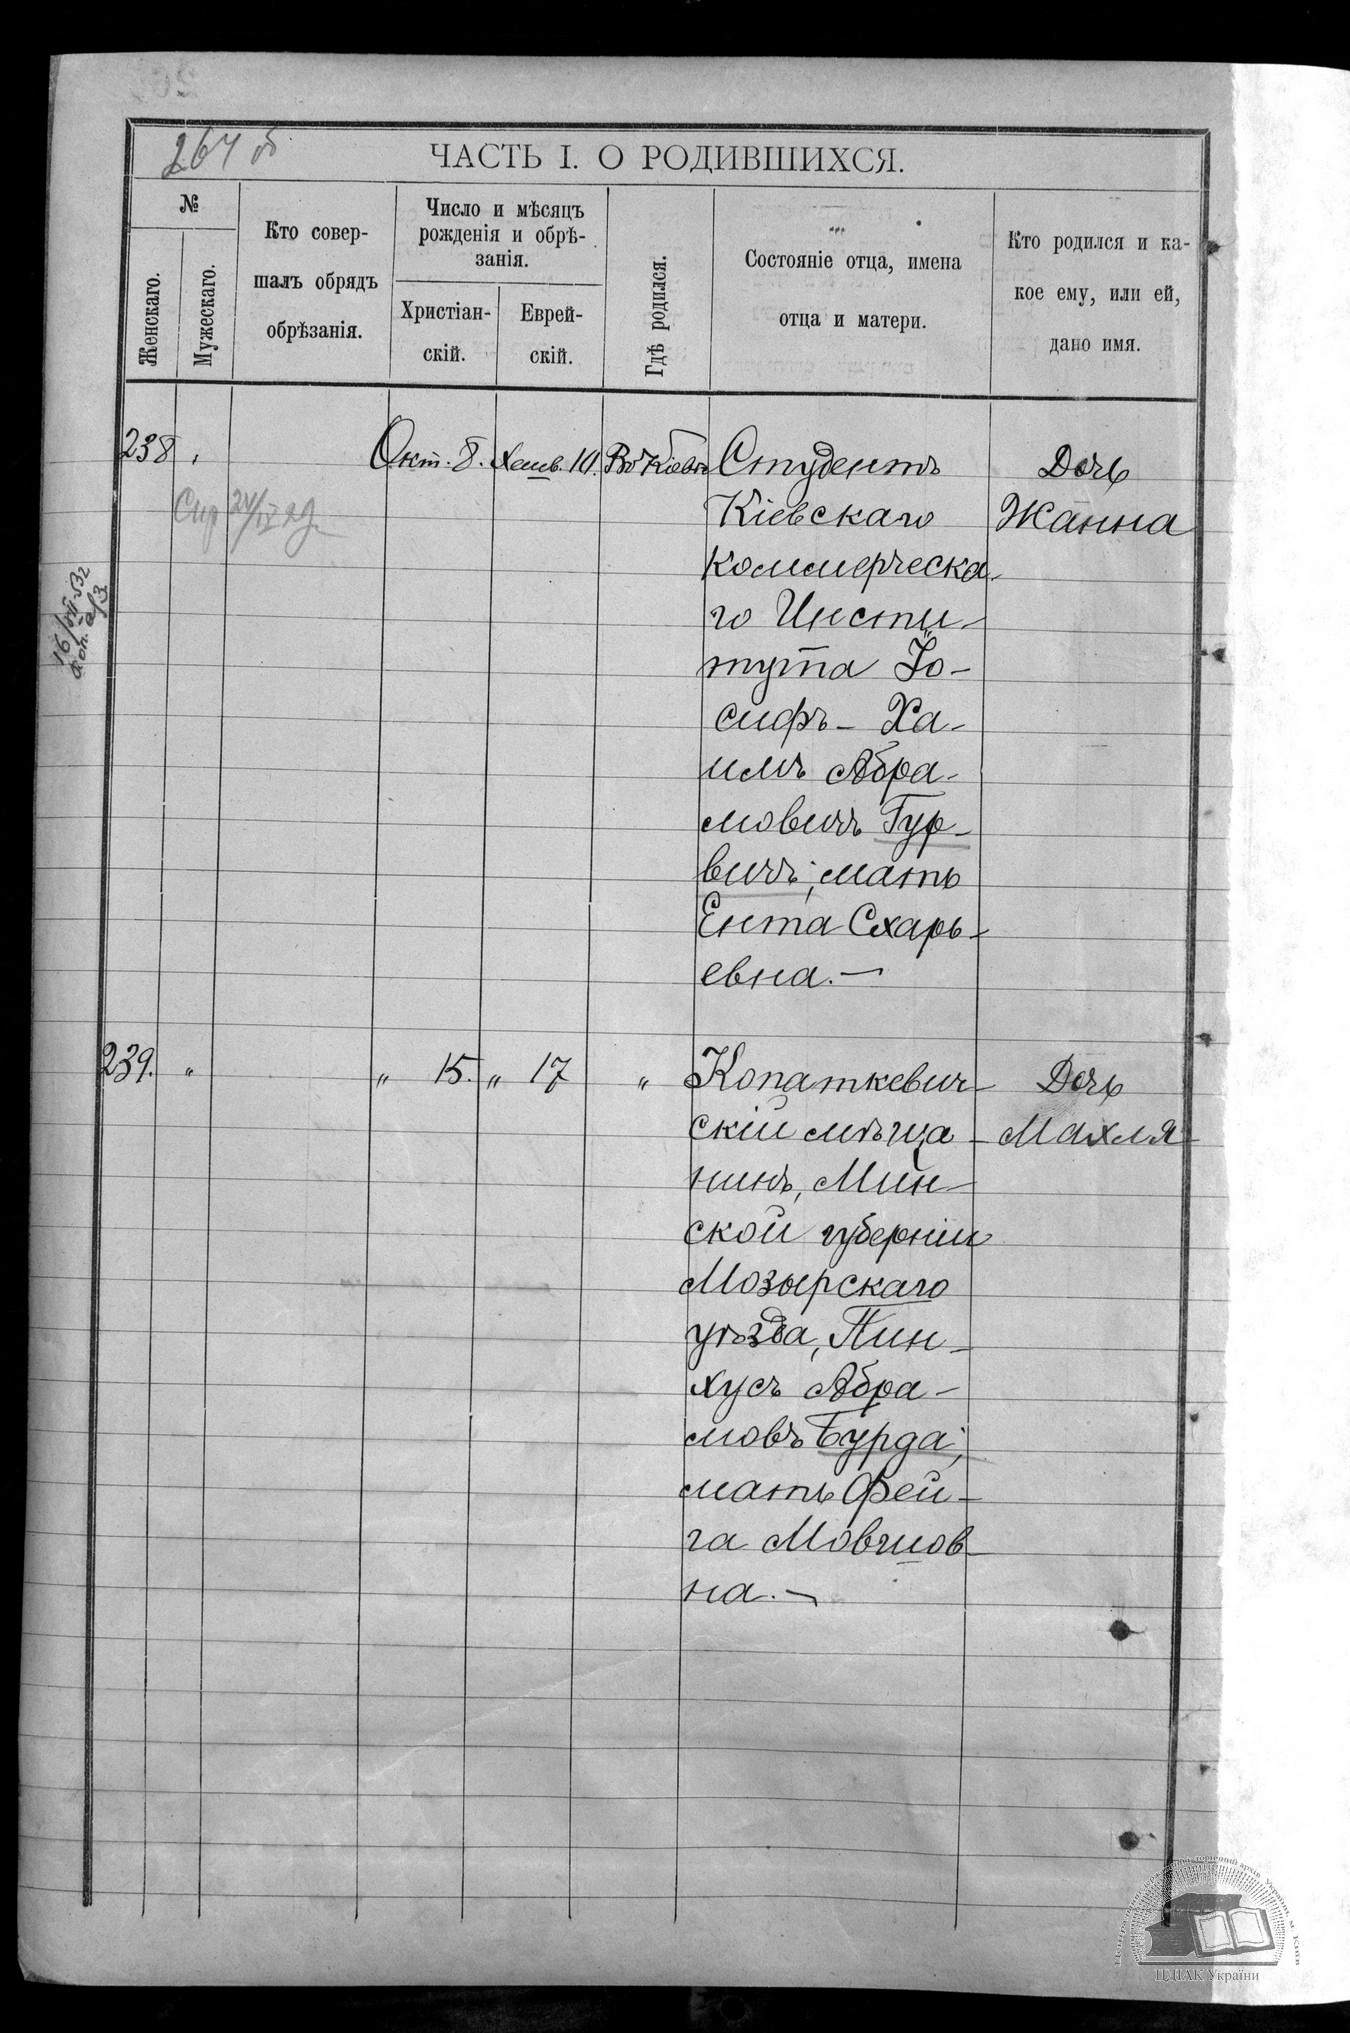 264 об
ЧАСТЬ I. О РОДИВШИХСЯ.
№
Женскаго.
Мужескаго.
Кто совер-
шалъ обрядъ
обрѣзанія.
Число и мѣсяцъ
рожденія и обрѣ-
занія.
Христіан-
скій.
Еврей-
скій.
Гдѣ родился.
Состояніе отца, имена
отца и матери.
Кто родился и ка-
кое ему, или ей,
дано имя.
238 Окт. 8. Хешв. 10. Въ Кіевѣ Студентъ Дочь
Кіевскаго Жанна
коммерческа-
го Инсти-
тута Іо-
сифъ-Ха-
имъ Абра-
мовичъ Гур-
вичъ; мать
Ента Схарь-
евна.—
239. " " 15. " 17 " Копаткевич- Дочь
скій мѣща- Махля
нинъ, Мин-
ской губерніи
Мозырскаго
уѣзда, Пин-
хусъ Абра-
мовъ Бурда;
мать Фей-
га Мовшов-
на.—
ЦДІАК України